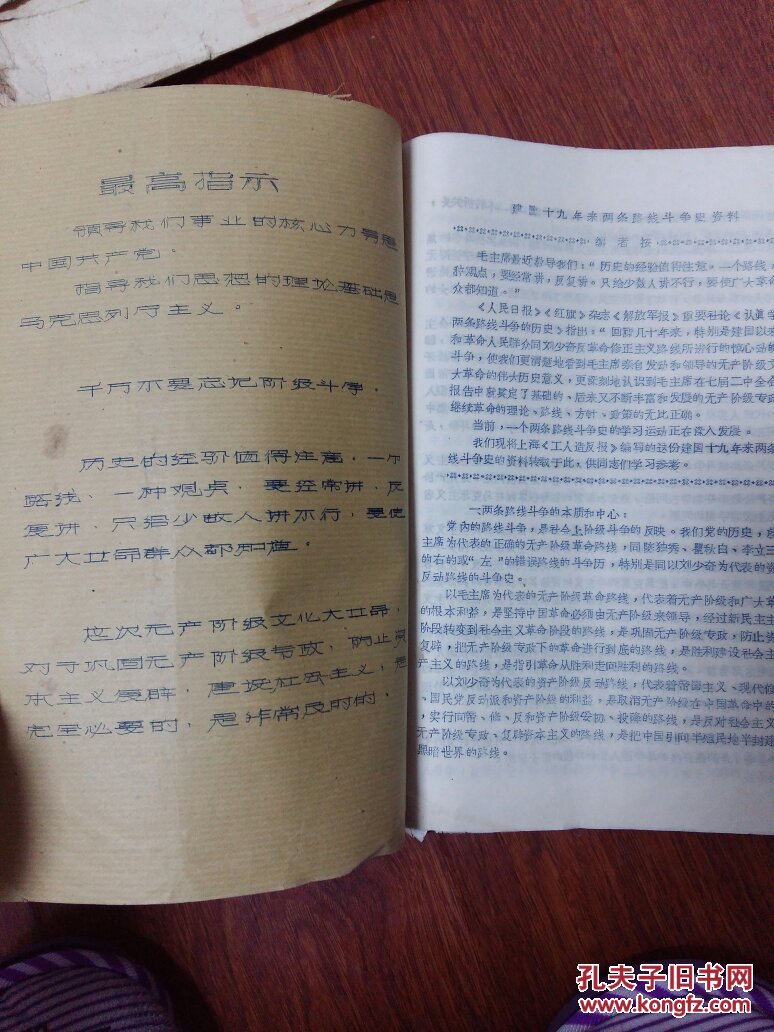 最高指示
领导我们事业的核心力量是
中国共产党。
指导我们思想的理论基础是
马克思列宁主义。
千万不要忘记阶级斗争。
历史的经验值得注意，一个
路线、一种观点，要经常讲，反
复讲。只给少数人讲不行，要使
广大革命群众都知道。
这次无产阶级文化大革命，
对于巩固无产阶级专政，防止资
本主义复辟，建设社会主义，是
完全必要的，是非常及时的，
建国十九年来两条路线斗争史资料
编者按
毛主席最近教导我们：“历史的经验值得注意。一个路线，
种观点，要经常讲，反复讲。只给少数人讲不行，要使广大革命
众都知道。”
《人民日报》《红旗》杂志《解放军报》重要社论《认真学
两条路线斗争的历史》指出：“回顾几十年来，特别是建国以来
和革命人民群众同刘少奇反革命修正主义路线所进行的惊心动
斗争，使我们更清楚地看到毛主席亲自发动和领导的无产阶级文
大革命的伟大历史意义，更深刻地认识到毛主席在七届二中全会
报告中就奠定了基础的、后来又不断丰富和发展的无产阶级专政
继续革命的理论、路线、方针、政策的无比正确。
当前，一个两条路线斗争史的学习运动正在深入发展。
我们现将上海《工人造反报》编写的这份建国十九年来两条
线斗争史的资料转载于此，供同志们学习参考。
一两条路线斗争的本质和中心：
党内的路线斗争，是社会上阶级斗争的反映。我们党的历史，
主席为代表的正确的无产阶级革命路线，同陈独秀、瞿秋白、李立三
的右的或“左”的错误路线的斗争历，特别是同以刘少奇为代表的资
反动路线的斗争史。
以毛主席为代表的无产阶级革命路线，代表着无产阶级和广大革
的根本利益，是坚持中国革命必须由无产阶级来领导，经过新民主主
阶段转变到社会主义革命阶段的路线，是巩固无产阶级专政，防止资
复辟，把无产阶级专政下的革命进行到底的路线，是胜利建设社会主
产主义的路线，是指引革命从胜利走向胜利的路线。
以刘少奇为代表的资产阶级反动路线，代表着帝国主义、现代修
、国民党反动派和资产阶级的利益，是取消无产阶级在中国革命中的
，实行向帝、修、反和资产阶级妥协、投降的路线，是反对社会主义
无产阶级专政、复辟资本主义的路线，是把中国引向半殖民地半封建
黑暗世界的路线。
孔夫子旧书网
www.kongfz.com